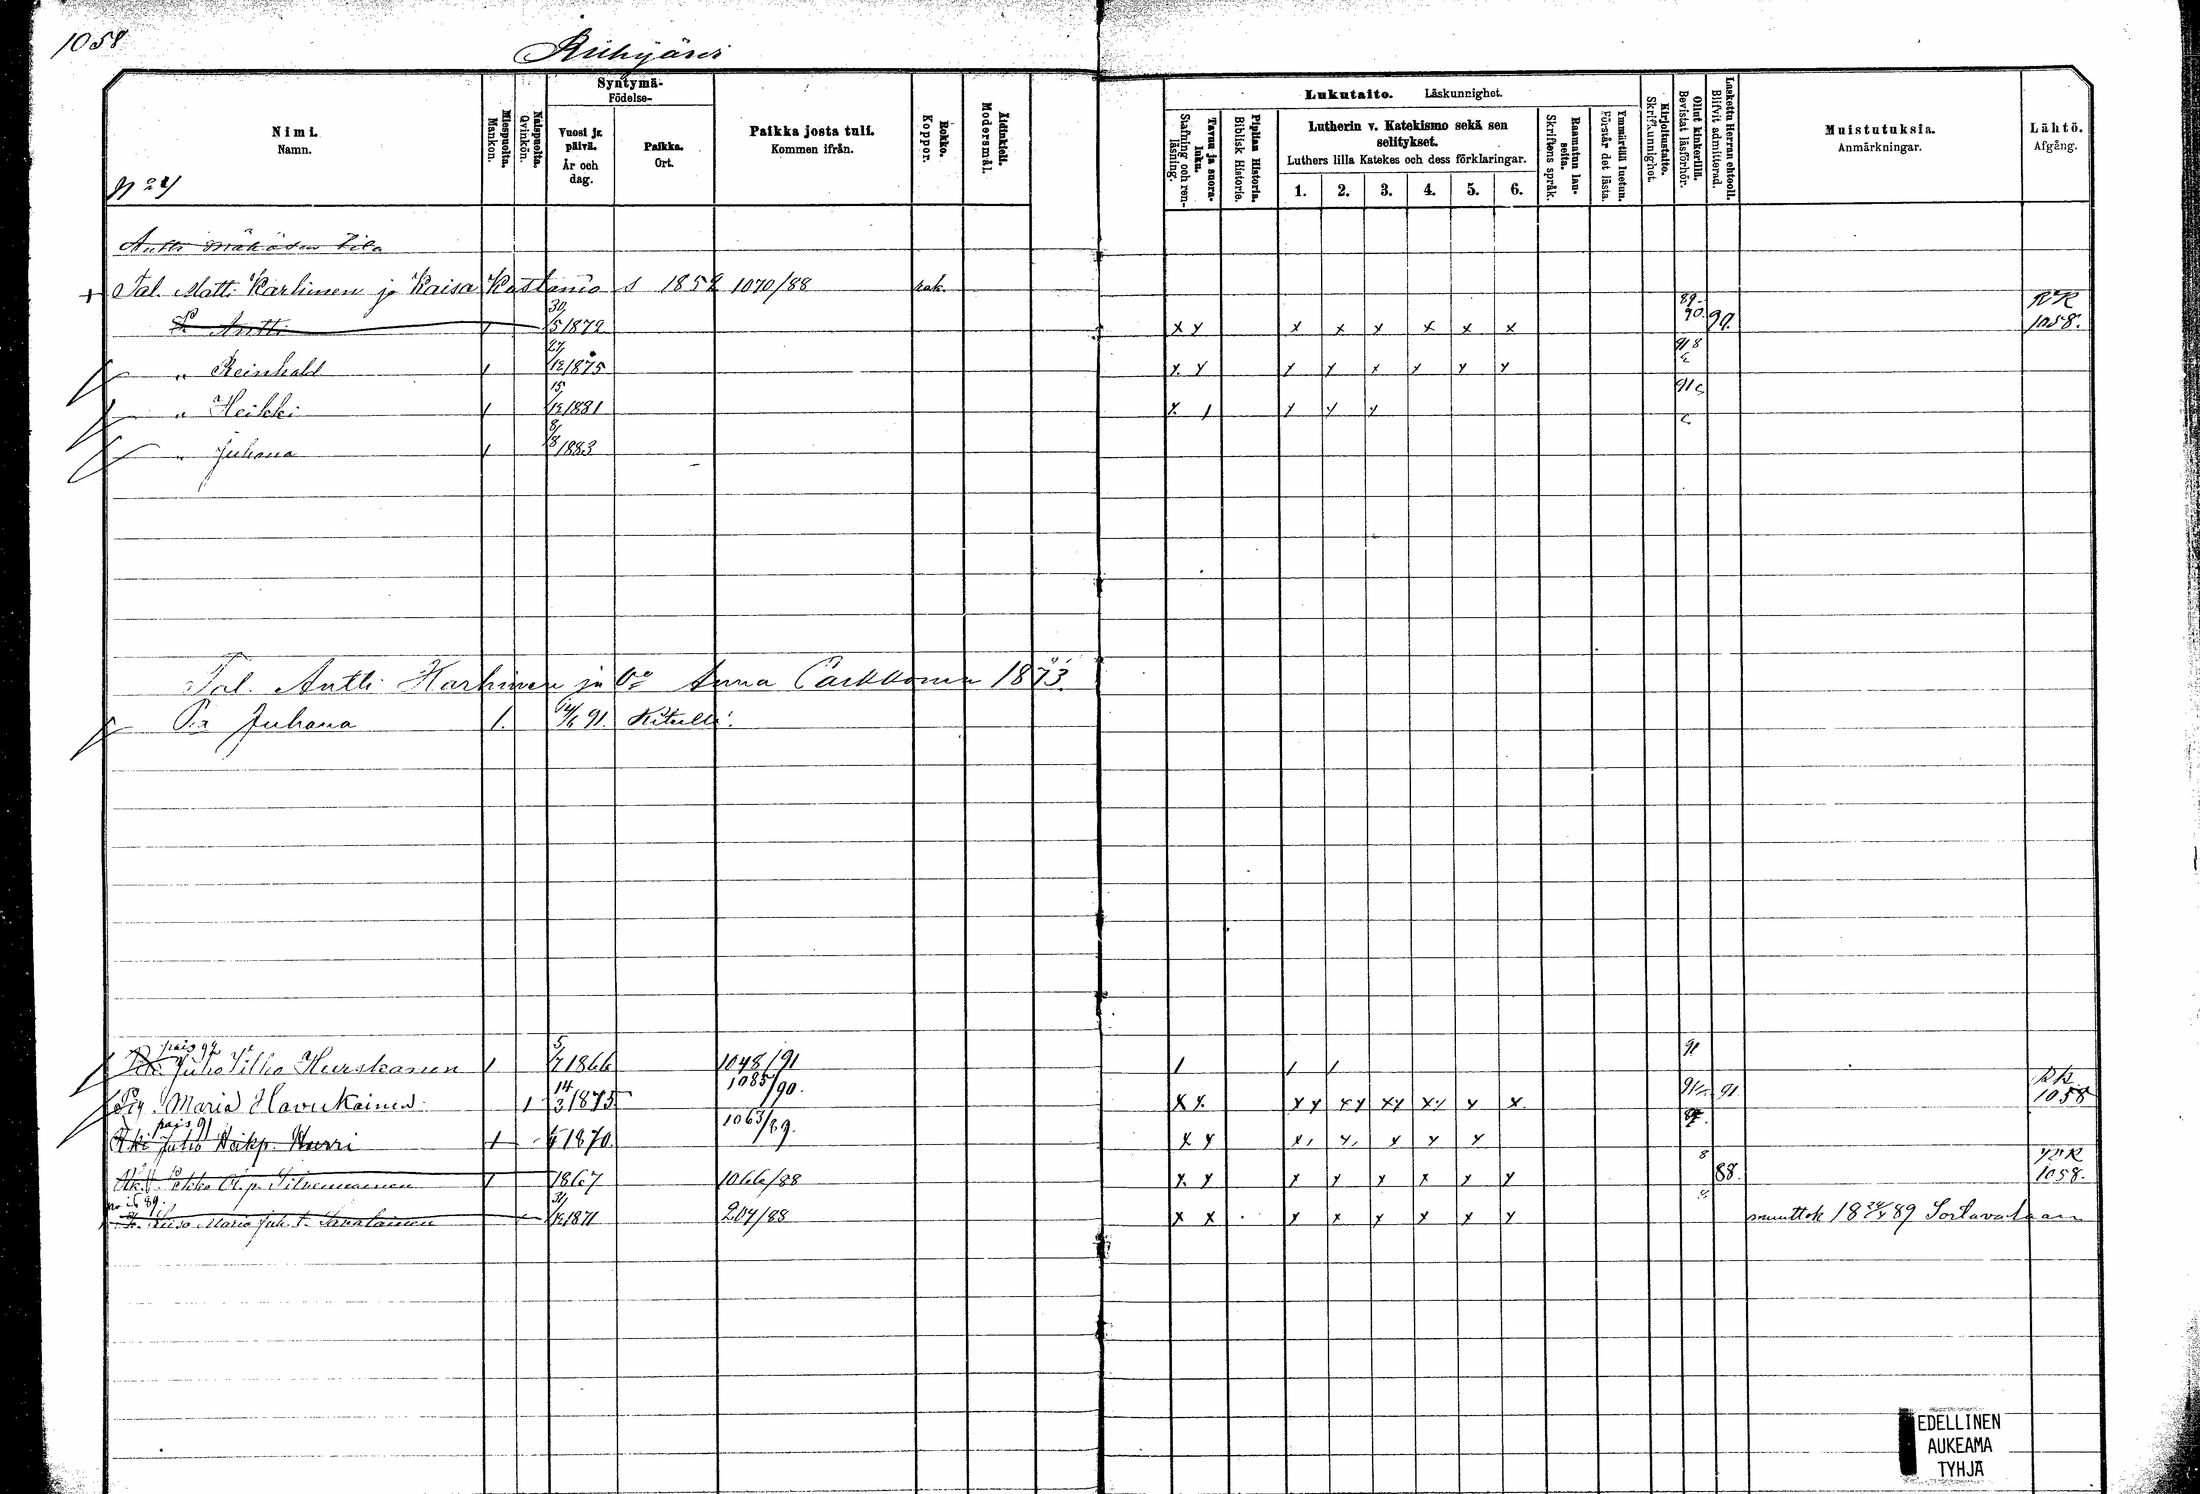 1058
Riihijärvi
Nimi.
Namn.
Miespuolta.
Mankön.
Naispuolta.
Qvinkön.
Syntymä-
Födelse-
Vuosi ja päivä.
År och dag.
Paikka.
Ort.
Paikka josta tuli.
Kommen ifrån.
Rokko.
Koppor.
Äidinkieli.
Modersmål.
Lukutaito. Läskunnighet.
Tavuu ja suora-luku.
Stafning och ren-läsning.
Piplian Historia.
Biblisk Historie.
Lutherin v. Katekismo sekä sen selitykset.
Luthers lilla Katekes och dess förklaringar.
1. 2. 3. 4. 5. 6.
Raamatun lau-seita.
Skriftens språk.
Ymmärtää luetun.
Förstår det lästa.
Kirjoitustaito.
Skrifkunnighet.
Ollut kinkerillä.
Bevistat läsförhör.
Laskettu Herran ehtooll.
Blifvit admitterad.
Muistutuksia.
Anmärkningar.
Lähtö.
Afgång.
No 4
Antti tila
+ Tal. Matti Karhinen ja Kaisa Kastanio s 1852 1070/88 rok.
P. Antti 1 30/5 1872 x y x x x x x x 89- 90. 90. RK 1058.
" Reinhold 1 27/12 1875 x y y y x y y y 91
" Heikki 1 15/12 1881 x 1 y y y 91
" Juhana 1 8/8 1883
Tal. Antti Karhinen ja Vo Anna 1873.
Pa Juhana 1. 14/6 91.
pais 92
Juho Vilho Hurskanen 1 5/7 1866 1048/91 1 1 1 91
Maria Havukainen 1 14/3 1875 1085/90. x x. xy xy xy xy y x. 91 91 1058
pais 91
Juho Heikp. Hurri 1 1870 1063/89. x y x, y, x y y
Pekka 1 1867 1066/88 y. y y y y x y y 8 88. 1058.
Maria Juh. t. 31/12 1871 204/88 x x y x y x y y muutt. 18 89 Sortavalaan
EDELLINEN
AUKEAMA
TYHJÄ